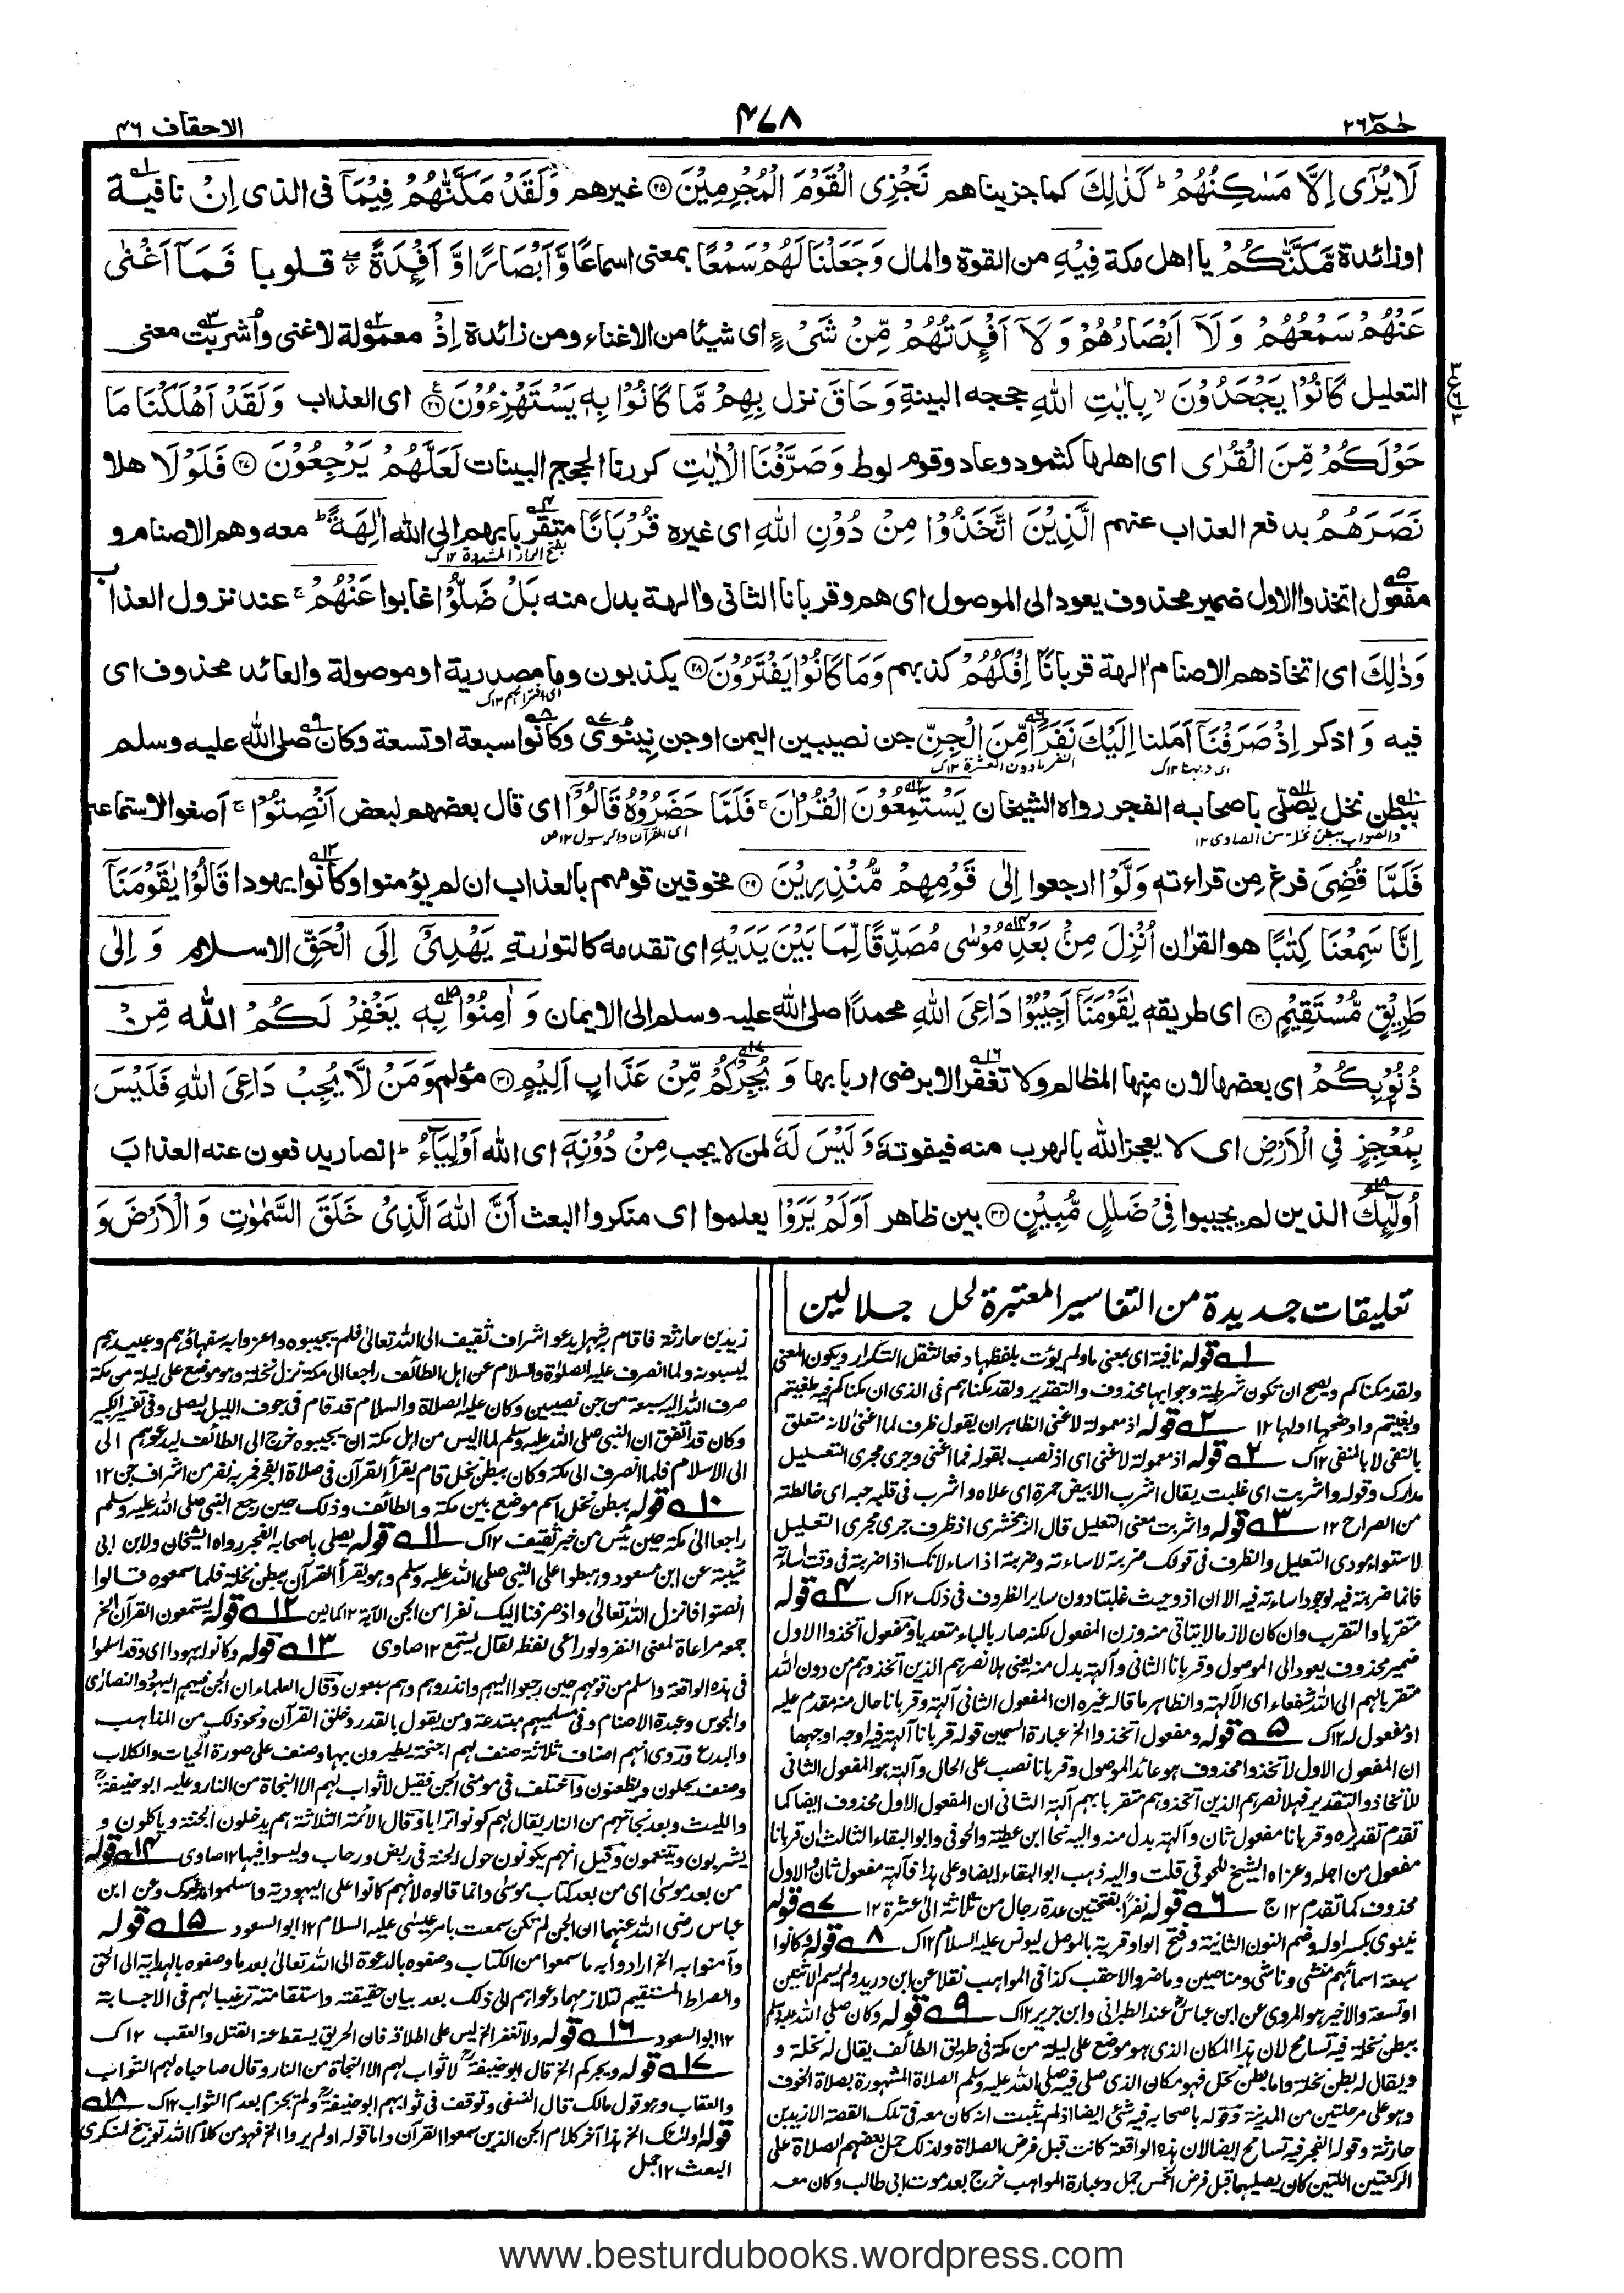 حٰمٓ ٢٦
٤٧٨
الاحقاف ٤٦
لَا يُرٰٓى اِلَّا مَسٰكِنُهُمْ ؕ كَذٰلِكَ كما جزيناهم نَجْزِى الْقَوْمَ الْمُجْرِمِيْنَ ﴿٢٥﴾ غيرهم وَلَقَدْ مَكَّنّٰهُمْ فِيْمَآ فى الذى اِنْ نافية
او زائدة مَّكَّنّٰكُمْ يا اهل مكة فِيْهِ من القوة والمال وَجَعَلْنَا لَهُمْ سَمْعًا بمعنى اسماعا وَّاَبْصَارًا وَّ اَفْـِٕدَةً ۖ قلوبا فَمَآ اَغْنٰى
عَنْهُمْ سَمْعُهُمْ وَ لَآ اَبْصَارُهُمْ وَ لَآ اَفْـِٕدَتُهُمْ مِّنْ شَىْءٍ اى شيئا من الاغناء ومن زائدة اِذْ معمولة لاغنى واُشربت معنى
التعليل كَانُوْا يَجْحَدُوْنَ ۙ بِاٰيٰتِ اللّٰهِ حججه البينة وَحَاقَ نزل بِهِمْ مَّا كَانُوْا بِهٖ يَسْتَهْزِءُوْنَ ﴿٢٦﴾ اى العذاب وَلَقَدْ اَهْلَكْنَا مَا
حَوْلَكُمْ مِّنَ الْقُرٰى اى اهلها كثمود وعاد وقوم لوط وَصَرَّفْنَا الْاٰيٰتِ كررنا الحجج البينات لَعَلَّهُمْ يَرْجِعُوْنَ ﴿٢٧﴾ فَلَوْلَا هلا
نَصَرَهُمُ بدفع العذاب عنهم الَّذِيْنَ اتَّخَذُوْا مِنْ دُوْنِ اللّٰهِ اى غيره قُرْبَانًا متقربا بهم الى الله اٰلِهَةً ؕ معه وهم الاصنام و
بفتح الراء المشددة ١٢ك
مفعول اتخذوا الاول ضمير محذوف يعود الى الموصول اى هم وقربانا الثانى واٰلهة بدل منه بَلْ ضَلُّوْا غابوا عَنْهُمْ ۚ عند نزول العذاب
وَذٰلِكَ اى اتخاذهم الاصنام اٰلهة قربانا اِفْكُهُمْ كذبهم وَمَا كَانُوْا يَفْتَرُوْنَ ﴿٢٨﴾ يكذبون وما مصدرية او موصولة والعائد محذوف اى
اى افتراءهم ١٢ك
فيه وَ اذكر اِذْ صَرَفْنَآ اَملنا اِلَيْكَ نَفَرًا مِّنَ الْجِنِّ جن نصيبين اليمن او جن نِينَوٰى وكانوا سبعة او تسعة وكان صلى الله عليه وسلم
النفر ما دون العشرة ١٢ك
ببطن نخل يصلّى باصحابه الفجر رواه الشيخان يَسْتَمِعُوْنَ الْقُرْاٰنَ ۚ فَلَمَّا حَضَرُوْهُ قَالُوْٓا اى قال بعضهم لبعض اَنْصِتُوْا ۚ اَصغوا لاستماعه
والصواب ببطن نخلة من الصاوى ١٢
اى القرآن والرسول ١٢ص
فَلَمَّا قُضِىَ فرغ من قراءته وَلَّوْا ارجعوا اِلٰى قَوْمِهِمْ مُّنْذِرِيْنَ ﴿٢٩﴾ مخوفين قومهم بالعذاب ان لم يؤمنوا وكانوا يهودا قَالُوْا يٰقَوْمَنَآ
اِنَّا سَمِعْنَا كِتٰبًا هو القراٰن اُنْزِلَ مِنْۢ بَعْدِ مُوْسٰى مُصَدِّقًا لِّمَا بَيْنَ يَدَيْهِ اى تقدمه كالتورٰىة يَهْدِىْٓ اِلَى الْحَقِّ الاسلام وَ اِلٰى
طَرِيْقٍ مُّسْتَقِيْمٍ ﴿٣٠﴾ اى طريقه يٰقَوْمَنَآ اَجِيْبُوْا دَاعِىَ اللّٰهِ محمدا صلى الله عليه وسلم الى الايمان وَ اٰمِنُوْا بِهٖ يَغْفِرْ لَكُمْ الله مِّنْ
ذُنُوْبِكُمْ اى بعضها لان منها المظالم ولا تغفر الا برضى اربابها وَ يُجِرْكُمْ مِّنْ عَذَابٍ اَلِيْمٍ ﴿٣١﴾ مؤلم وَمَنْ لَّا يُجِبْ دَاعِىَ اللّٰهِ فَلَيْسَ
بِمُعْجِزٍ فِى الْاَرْضِ اى لا يعجز الله بالهرب منه فيفوته وَ لَيْسَ لَهٗ لمن لا يجب مِنْ دُوْنِهٖٓ اى الله اَوْلِيَآءُ ؕ انصار يدفعون عنه العذاب
اُولٰٓئِكَ الذين لم يجيبوا فِىْ ضَلٰلٍ مُّبِيْنٍ ﴿٣٢﴾ بين ظاهر اَوَلَمْ يَرَوْا يعلموا اى منكروا البعث اَنَّ اللّٰهَ الَّذِىْ خَلَقَ السَّمٰوٰتِ وَ الْاَرْضَ وَ
تعليقات جديدة من التفاسير المعتبرة لحل جلالين
١ قوله نافية اى بمعنى ما ولم يؤت بلفظها دفعا لثقل التكرار ويكون المعنى
ولقد مكناكم ويصح ان تكون شرطية وجوابها محذوف والتقدير ولقد مكناهم فى الذى ان مكناكم فيه طغيتم
وبغيتم واوضحها اولها ١٢ ٢ قوله اذ معمولة لاغنى الظاهر ان يقول ظرف لما اغنى لانه متعلق
بالنفى لا بالمنفى ١٢ك ٢ قوله اذ معمولة لاغنى اى اذ نصب بقوله فما اغنى وجرى مجرى التعليل
مدارك وقوله واشربت اى غلبت يقال اشرب الابيض حمرة اى علاه واشرب فى قلبه حبه اى خالطته
من الصراح ١٢ ٣ قوله واشربت معنى التعليل قال الزمخشرى اذ ظرف جرى مجرى التعليل
لاستواء مودى التعليل والظرف فى قولك ضربته لاساءته وضربته اذ اساء لانك اذا ضربته فى وقت اساءته
فانما ضربته فيه لوجود اساءته فيه الا ان اذ وحيث غلبتا دون ساير الظروف فى ذلك ١٢ك ٤ قوله
متقربا والتقرب وان كان لازما لا يتاتى منه وزن المفعول لكنه صار بالباء متعديا ومفعول اتخذوا الاول
ضمير محذوف يعود الى الموصول وقربانا الثانى وآلهة بدل منه يعنى هلا نصرهم الذين اتخذوهم من دون الله
متقربا بهم الى الله شفعاء اى الآلهة والظاهر ما قاله غيره ان المفعول الثانى آلهة وقربانا حال منه مقدم عليه
او مفعول له ١٢ك ٥ قوله ومفعول اتخذوا الخ عبارة السمين قوله قربانا آلهة فيه اوجه اوجهها
ان المفعول الاول لاتخذوا محذوف هو عائد الموصول وقربانا نصب على الحال وآلهة هو المفعول الثانى
للاتخاذ والتقدير فهلا نصرهم الذين اتخذوهم متقربا بهم آلهة الثانى ان المفعول الاول محذوف ايضا كما
تقدم تقديره وقربانا مفعول ثان وآلهة بدل منه واليه نحا ابن عطية والحوفى وابو البقاء الثالث ان قربانا
مفعول من اجله وعزاه الشيخ للحوفى قلت واليه ذهب ابو البقاء ايضا وعلى هذا فآلهة مفعول ثان والاول
محذوف كما تقدم ١٢ج ٦ قوله نفرا بفتحتين عدة رجال من ثلاثة الى عشرة ١٢ ٧ قوله
نينوى بكسر اوله وضم النون الثانية وفتح الواو قرية بالموصل ليونس عليه السلام ١٢ك ٨ قوله وكانوا
سبعة اسمائهم منشى وناشى ومناصين وماضر والاحقب كذا فى المواهب نقلا عن ابن دريد ولم يسم الاثنين
او تسعة والاخير هو المروى عن ابن عباس عند الطبرانى وابن جرير ١٢ك ٩ قوله وكان صلى الله عليه وسلم
ببطن نخلة فيه تسامح لان هذا المكان الذى هو موضع على ليلة من مكة فى طريق الطائف يقال له نخلة و
ويقال له بطن نخلة واما بطن نخل فهو مكان الذى صلى فيه صلى الله عليه وسلم الصلاة المشهورة بصلاة الخوف
وهو على مرحلتين من المدينة وقوله باصحابه فيه شئ ايضا اذ لم يثبت انه كان معه فى تلك القصة الا زيد بن
حارثة وقوله الفجر فيه تسامح ايضا لان هذه الواقعة كانت قبل فرض الصلاة ولذلك حمل بعضهم الصلاة على
الركعتين اللتين كان يصليهما قبل فرض الخمس جمل وعبارة المواهب خرج بعد موت ابى طالب وكان معه
زيد بن حارثة فاقام به شهرا يدعو اشراف ثقيف الى الله تعالى فلم يجيبوه واغروا به سفهاؤهم وعبيدهم
يسبونه ولما انصرف عليه الصلوة والسلام عن اهل الطائف راجعا الى مكة نزل نخلة وهو موضع على ليلة من مكة
صرف الله اليه سبعة من جن نصيبين وكان عليه الصلاة والسلام قد قام فى جوف الليل يصلى وفى تفسير الكبير
وكان قد اتفق ان النبى صلى الله عليه وسلم لما ايس من اهل مكة ان يجيبوه خرج الى الطائف ليدعوهم الى
الى الاسلام فلما انصرف الى مكة وكان ببطن نخل قام يقرأ القرآن فى صلاة الفجر فمر به نفر من اشراف جن ١٢
١٠ قوله ببطن نخل اسم موضع بين مكة والطائف وذلك حين رجع النبى صلى الله عليه وسلم
راجعا الى مكة حين يئس من خير ثقيف ١٢ك ١١ قوله يصلى باصحابه الفجر رواه الشيخان ولابن ابى
شيبة عن ابن مسعود وهبطوا على النبى صلى الله عليه وسلم وهو يقرأ القرآن ببطن نخلة فلما سمعوه قالوا
انصتوا فانزل الله تعالى واذ صرفنا اليك نفرا من الجن الآية ١٢ كمالين ١٢ قوله يستمعون القرآن الخ
جمعه مراعاة لمعنى النفر ولو راعى لفظه لقال يستمع ١٢ صاوى ١٣ قوله وكانوا يهودا اى وقد اسلموا
فى هذه الواقعة واسلم من قومهم حين رجعوا اليهم وانذروهم وهم سبعون وقال العلماء ان الجن فيهم اليهود والنصارى
والمجوس وعبدة الاصنام وفى مسلميهم مبتدعة ومن يقول بالقدر وخلق القرآن ونحو ذلك من المذاهب
والبدع وروى انهم اصناف ثلاثة صنف لهم اجنحة يطيرون بها وصنف على صورة الحيات والكلاب
وصنف يحلون ويظعنون واختلف فى مومنى الجن فقيل لا ثواب لهم الا النجاة من النار وعليه ابو حنيفة
والليث وبعد نجاتهم من النار يقال لهم كونوا ترابا وقال الائمة الثلاثة هم يدخلون الجنة وياكلون و
يشربون ويتنعمون وقيل انهم يكونون حول الجنة فى ربض ورحاب وليسوا فيها ١٢ صاوى ١٤ قوله
من بعد موسى اى من بعد كتاب موسى وانما قالوه لانهم كانوا على اليهودية واسلموا وعن ابن
عباس رضى الله عنهما ان الجن لم تكن سمعت بامر عيسى عليه السلام ١٢ ابو السعود ١٥ قوله
وآمنوا به الخ ارادوا به ما سمعوا من الكتاب وصفوه بالدعوة الى الله تعالى بعد ما وصفوه بالهداية الى الحق
والصراط المستقيم لتلازمهما دعواهم الى ذلك بعد بيان حقيقته واستقامته ترغيبا لهم فى الاجابة
١٢ ابو السعود ١٦ قوله ولا تغفر الخ ليس على اطلاقه فان الحربى يسقط عنه القتل والغصب ١٢ك
١٧ قوله ويجركم الخ قال ابو حنيفة لا ثواب لهم الا النجاة من النار وقال صاحباه لهم الثواب
والعقاب وهو قول مالك قال النسفى وتوقف فى ثوابهم ابو حنيفة ولم يجزم بعدم الثواب ١٢ك ١٨
قوله اولئك الخ هذا آخر كلام الجن الذين سمعوا القرآن واما قوله اولم يروا الخ فهو من كلام الله توبيخ لمنكرى
البعث ١٢ جمل
www.besturdubooks.wordpress.com